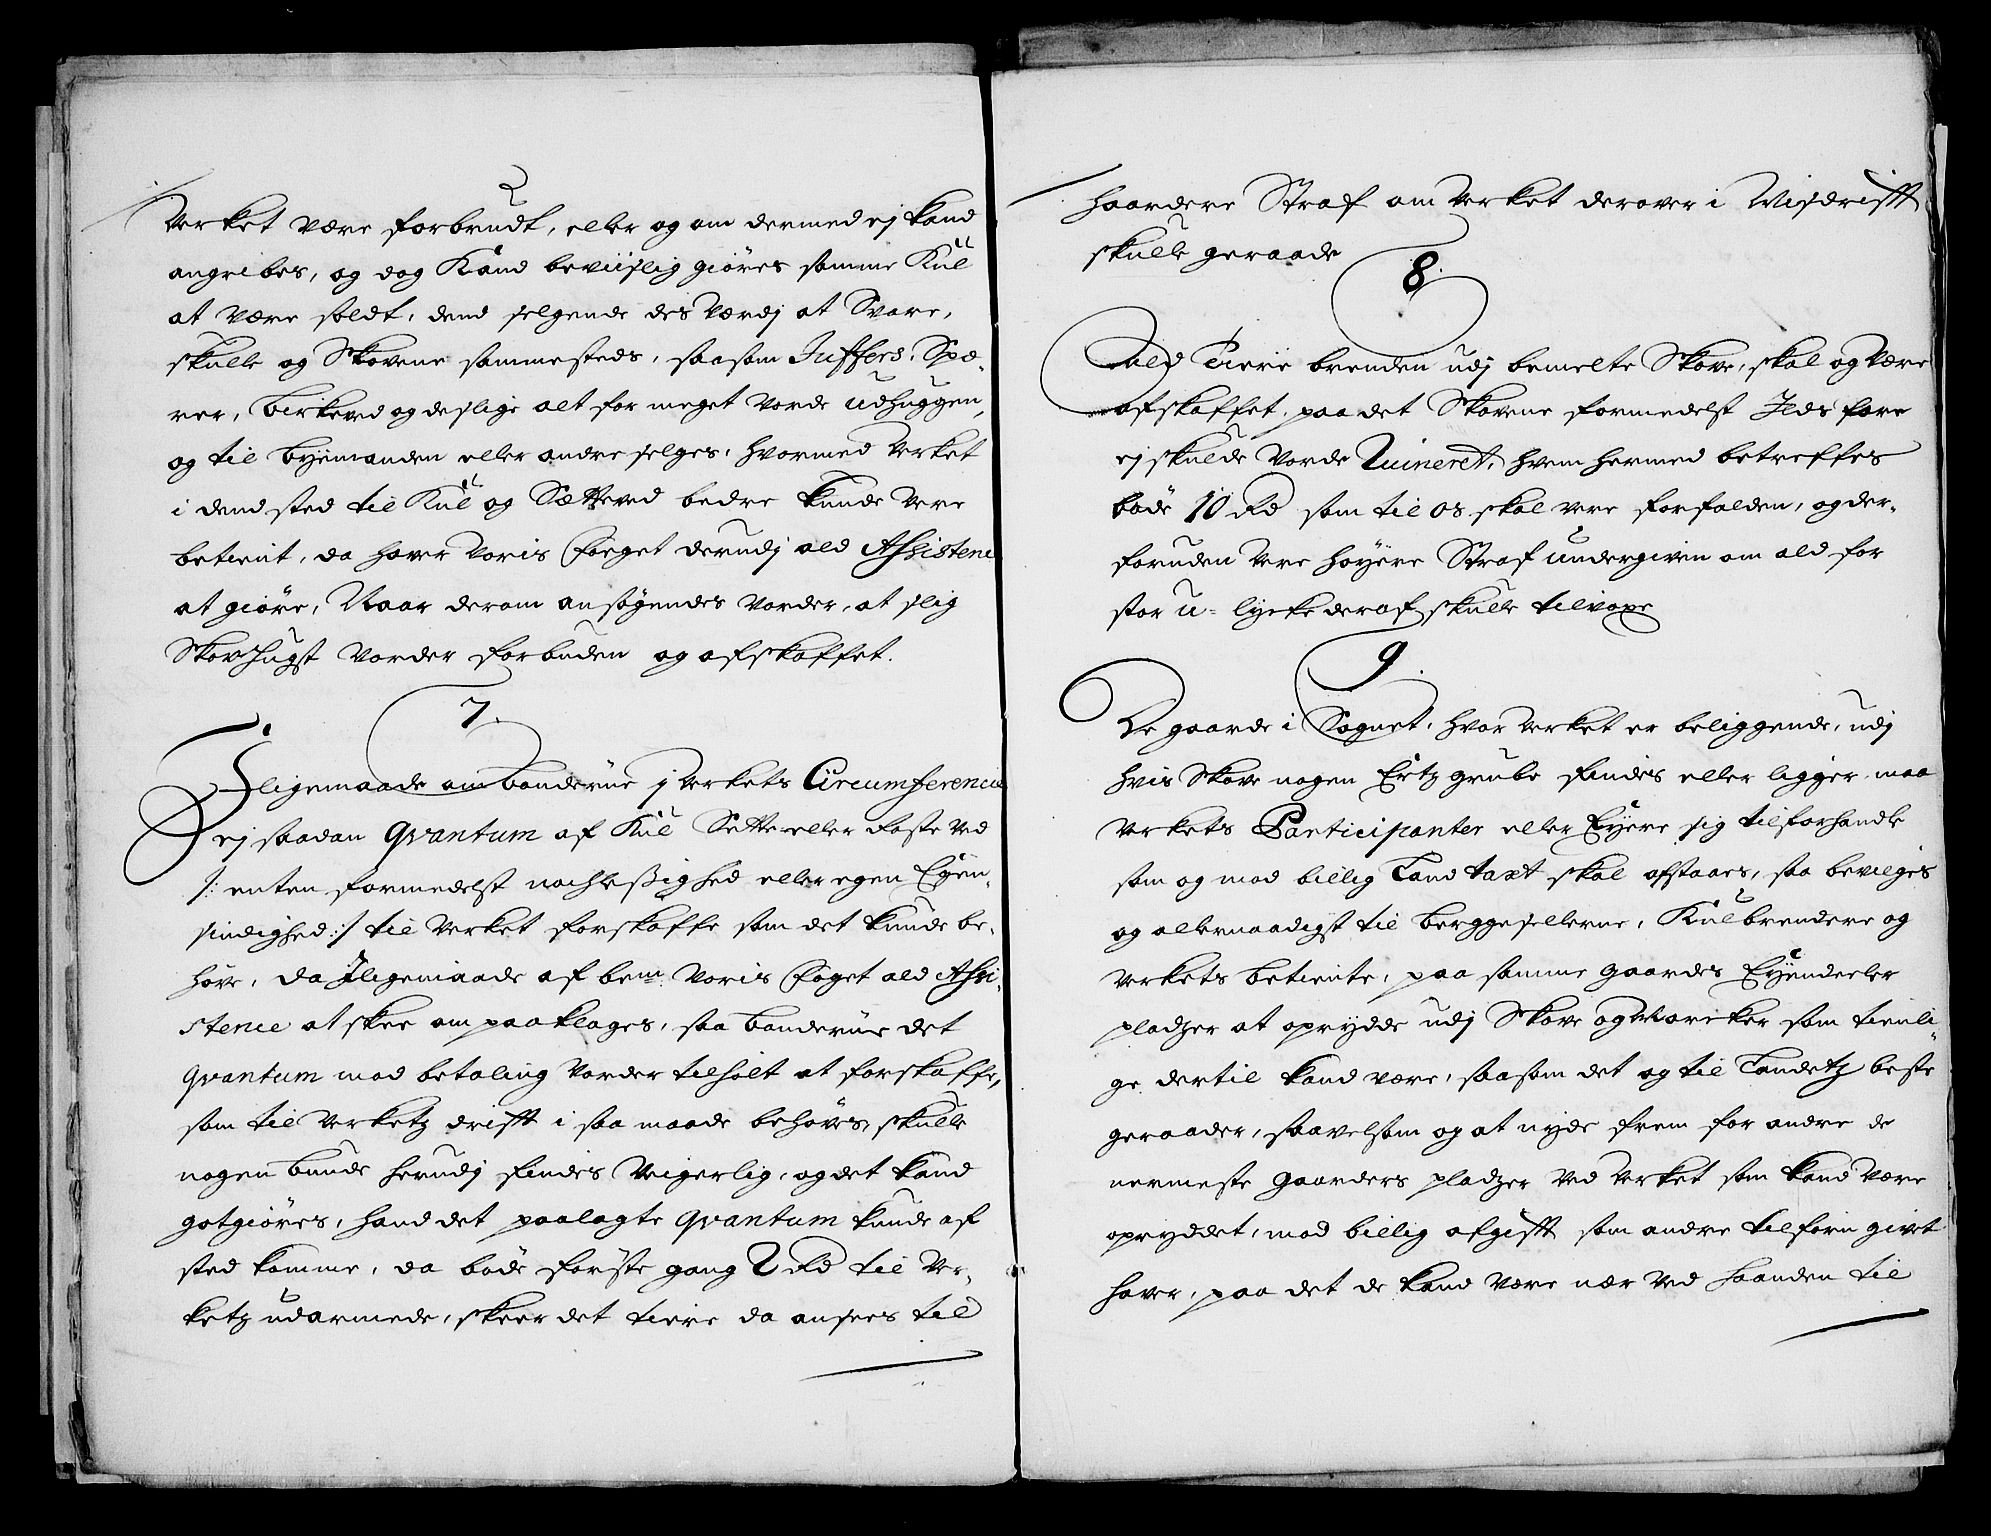 Verket være forbrudt, eller og om dermed ej kand
angribes, og dog Kand beviislig giöres samme Kul
at være soldt, dend selgende des værdj at Svare,
skulle og Skovene sammesteds, saasom Juffers, Spæ-
rer, birkeved og deslige alt for meget vorde udhuggen,
og til byemanden eller andre selges, hvormed Verket
i dend sted til Kul og Sætteved bedre kunde vere
betient, da haver voris foeget derudj ald Assistence
at giöre, Naar derom ansögendes vorder, at slig
Skovhugst vorder forbuden og afskaffet.
7.
Iligemaade om bönderne j Verkets Circumference
ej saadan qvantum af Kul Sette eller Roste ved
/: enten formedelst nachleßighed eller egen Egen-
sindighed :/ til Verket forskaffe som det kunde be-
höve, da Iligemaade af bem: Voris foget ald Assi-
stence at skee om paaklages, saa bönderne det
qvantum mod betaling vorder tilholt at forskaffe,
som til Verketz drifft i saa maade behöves, skulle
nogen bunde herudj findes Veigerlig, og det kand
gotgiöres, hand det paalagte qvantum kunde af
sted komme, da böde förste gang 2 Rd til Ver-
ketz udarmede, skeer det tiere da ansees til
haardere Straf om Verket derover i Misdrifft
skulle geraade
8.
Ald Tiere brenden udj bemelte Skove, skal og være
afskaffet, paa det Skovene formedelst Ilds fare
ej skulde vorde Ruineret, hvem hermed betreffes
böde 10 Rd som til os skal vere forfalden, og der-
foruden vere höyere Straf undergiven om ald for
stor u-lycke deraf skulle tilvoxe
9.
De gaarde i Sognet, hvor Verket er beliggende, udj
hvis Skove nogen Ertz grube findes eller ligger, maa
Verkets Participanter eller Eyere sig tilforhandle
som og mod billig Land taxt skal afstaaes, saa bevilges
og allernaadigst til berggesellerne, Kulbrendere og
Verkets betiente, paa samme gaardes Eyendeeler
pladzer at oprydde udj Skove og Marcker som tienli-
ge dertil kand være, saasom det og til Landetz beste
geraader, saavelsom og at nyde frem for andre de
nermeste gaarders pladzer ved Verket som kand være
opryddet, mod billig afgifft som andre tilforn givet
haver, paa det de kand være nær ved haanden til